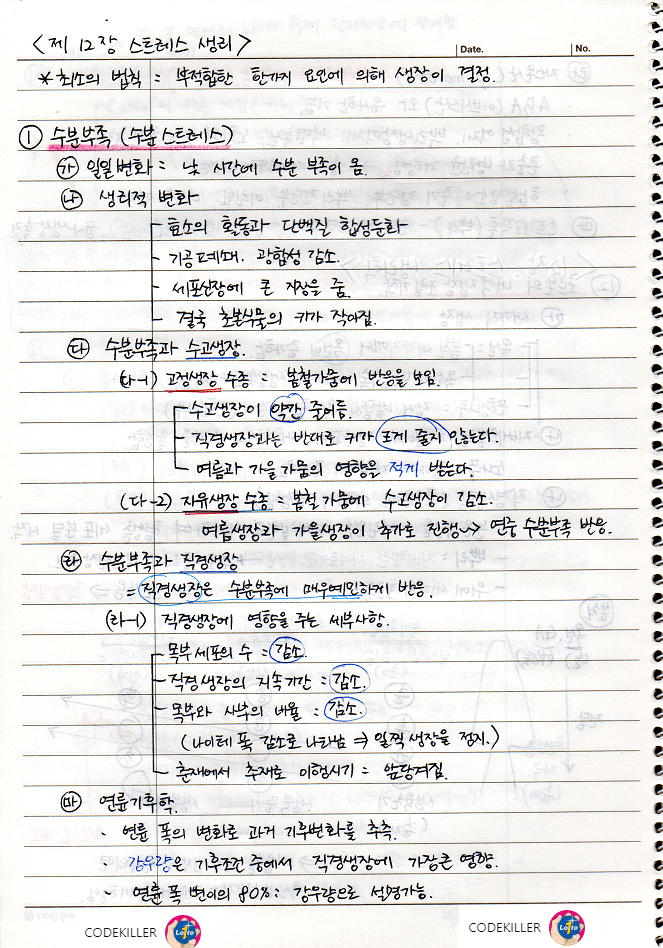 <제 12장 스트레스 생리>
Date. No.
* 최소의 법칙 = 부적합한 한가지 요인에 의해 생장이 결정.
① 수분부족 (수분스트레스)
㉮ 일일변화 = 낮 시간에 수분 부족이 옴.
㉯ 생리적 변화
- 효소의 활동과 단백질 합성둔화
- 기공폐쇄. 광합성 감소.
- 세포신장에 큰 지장을 줌.
- 결국 초본식물의 키가 작아짐.
㉰ 수분부족과 수고생장.
(다-1) 고정생장 수종 = 봄철가뭄에 반응을 보임.
- 수고생장이 약간 줄어듬.
- 직경생장과는 반대로 키가 크게 줄지 않는다.
- 여름과 가을 가뭄의 영향을 적게 받는다.
(다-2) 자유생장 수종 = 봄철 가뭄에 수고생장이 감소.
여름생장과 가을생장이 추가로 진행 → 연중 수분부족 반응.
㉱ 수분부족과 직경생장
= 직경생장은 수분부족에 매우예민하게 반응.
(라-1) 직경생장에 영향을 주는 세부사항.
- 목부세포의 수 = 감소.
- 직경생장의 지속기간 = 감소.
- 목부와 사부의 비율 = 감소.
(나이테 폭 감소로 나타남 ⇒ 일찍 생장을 정지.)
- 춘재에서 추재로 이행시기 = 앞당겨짐.
㉲ 연륜기후학.
· 연륜 폭의 변화로 과거 기후변화를 추측.
· 강우량은 기후조건 중에서 직경생장에 가장큰 영향.
· 연륜폭 변이의 80% : 강우량으로 설명가능.
CODEKILLER Lotto CODEKILLER Lotto